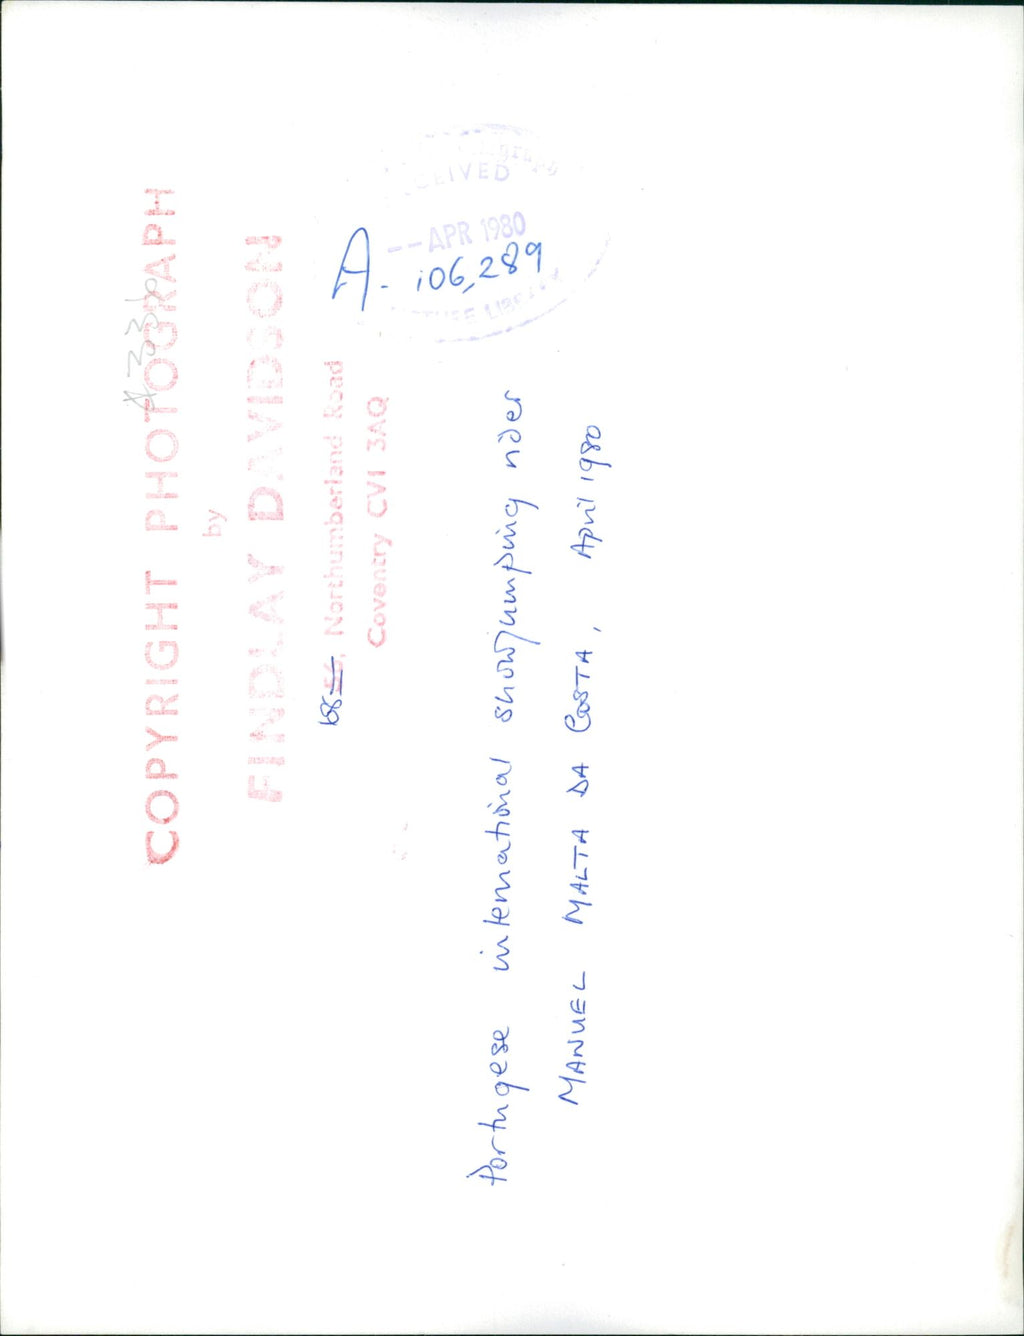 COPYRIGHT PHOTOGRAPH
by
FINDLAY DAVIDSON
68 56, Northumberland Road
Coventry CV1 3AQ
RECEIVED
-- APR 1980
A. 106,289
Portugese international showjumping rider
MANUEL MALTA DA COSTA, April 1980